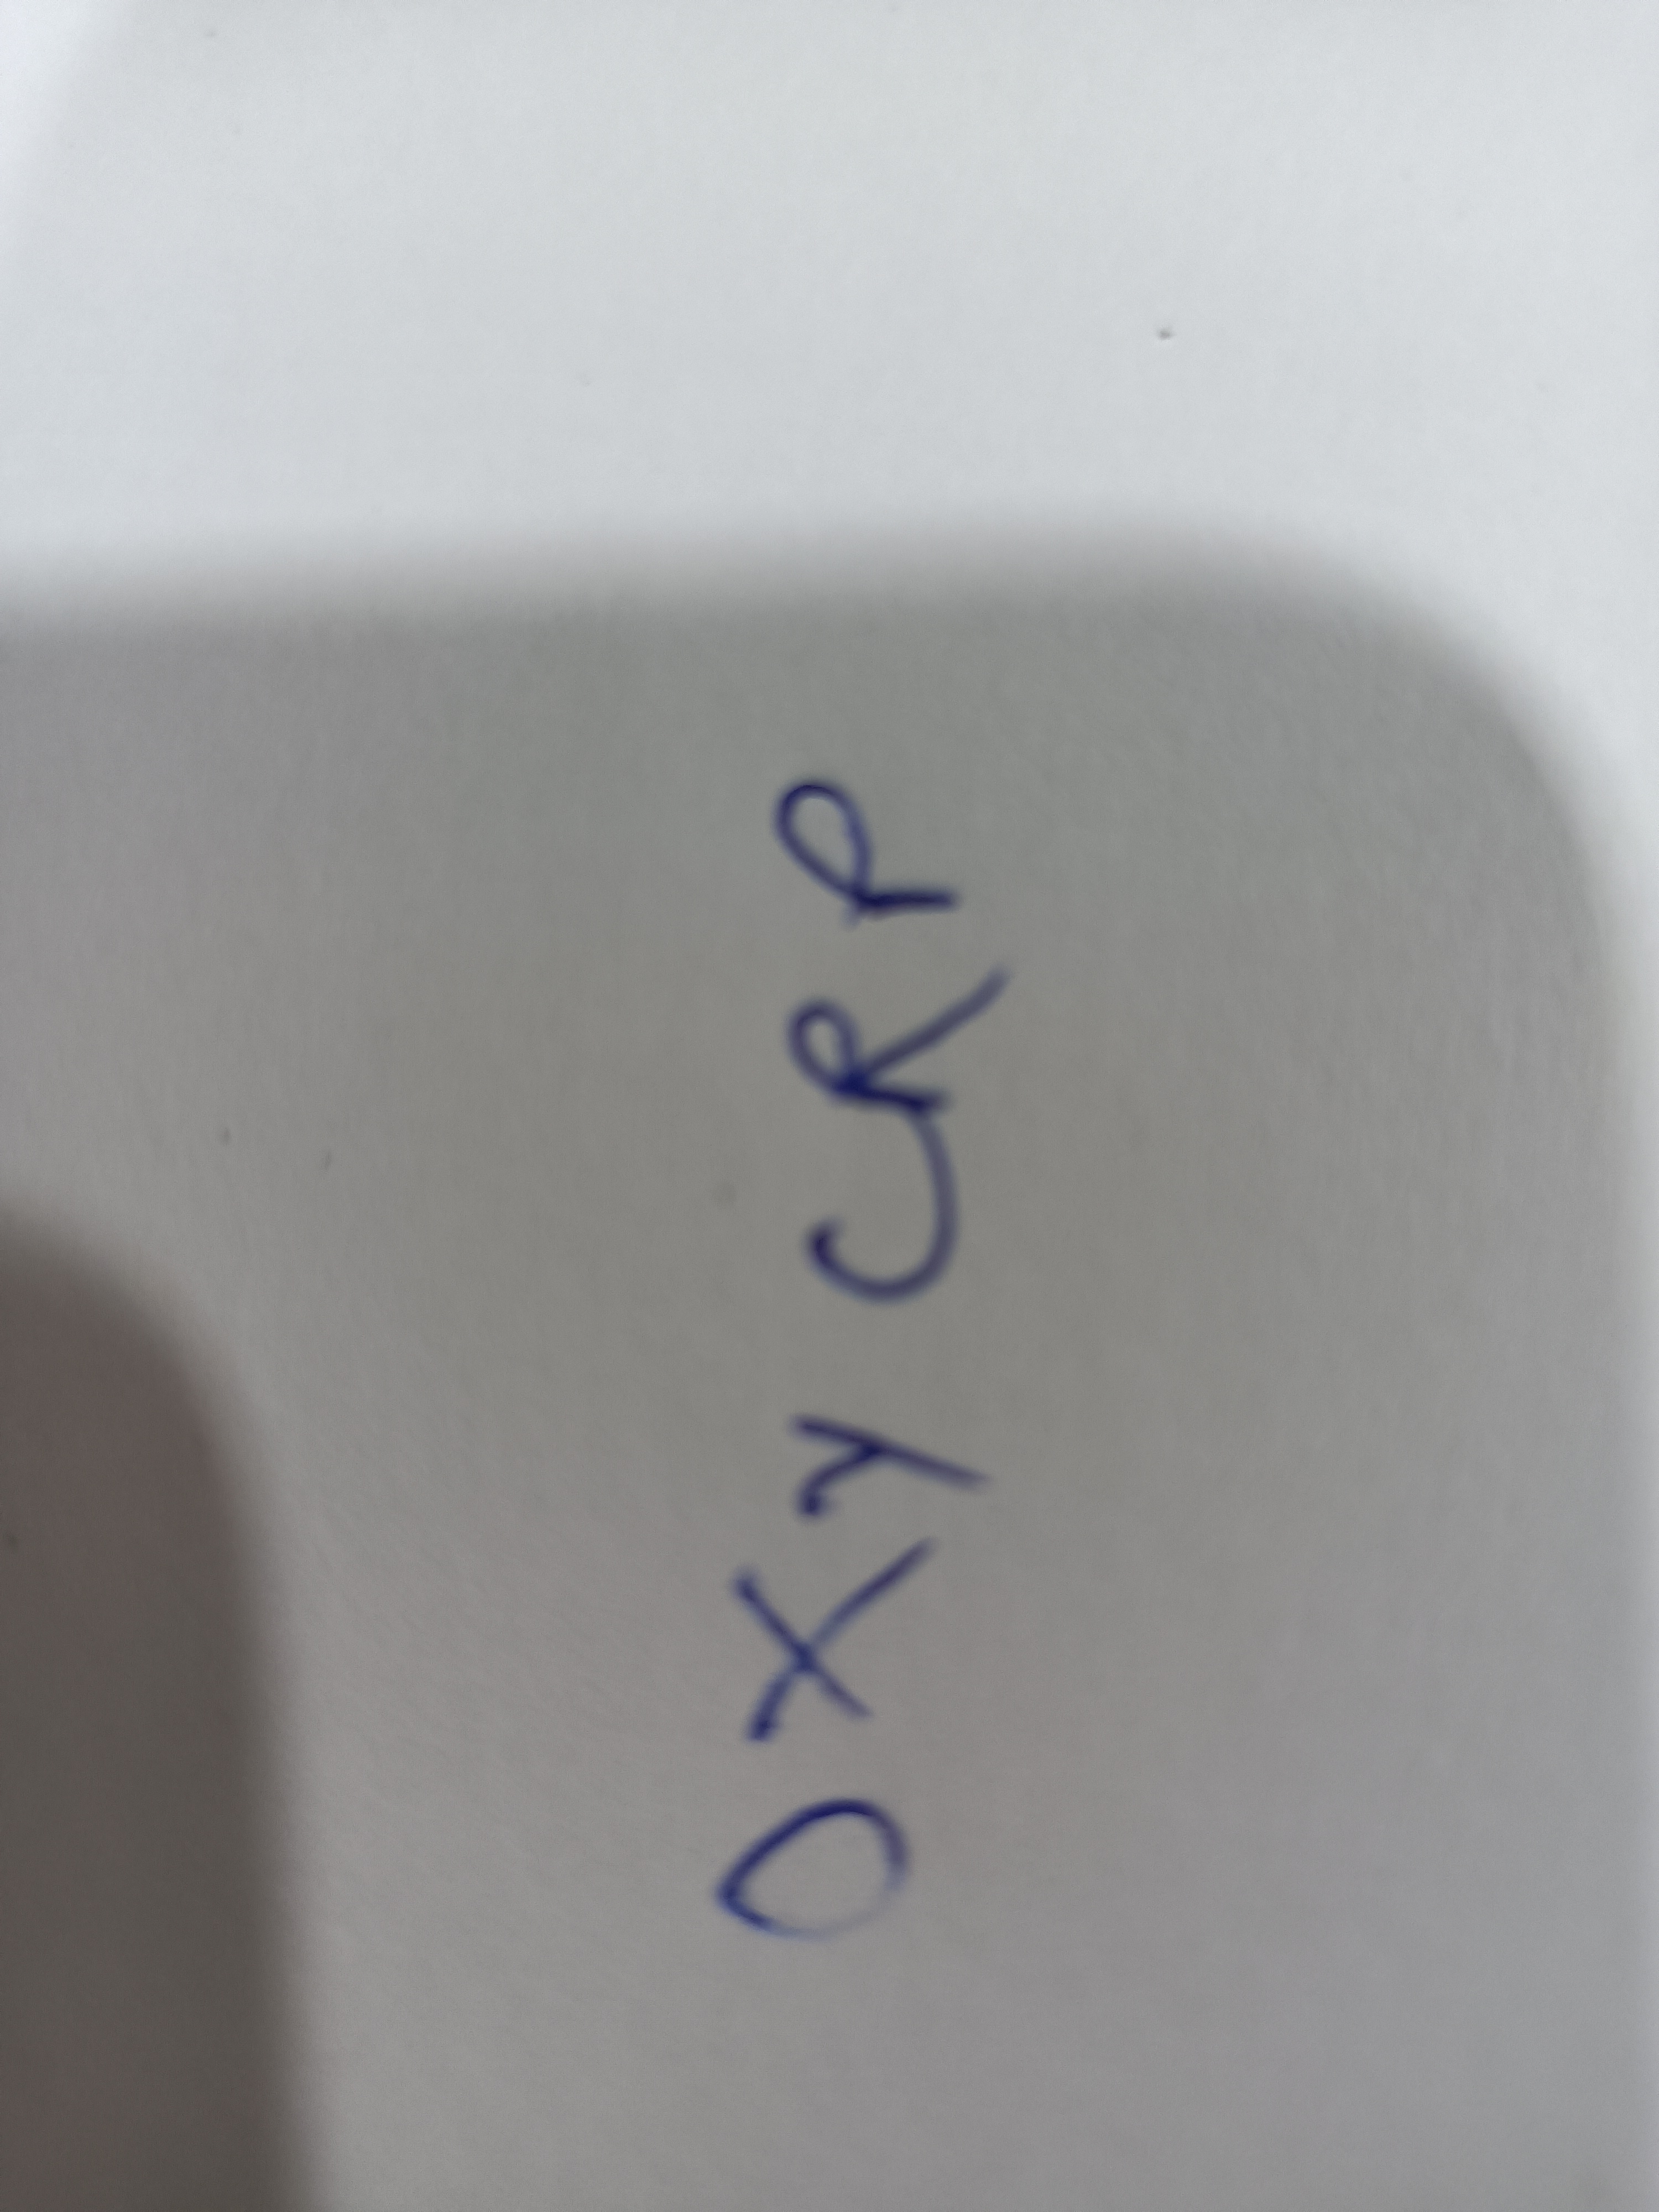 OXY CRP